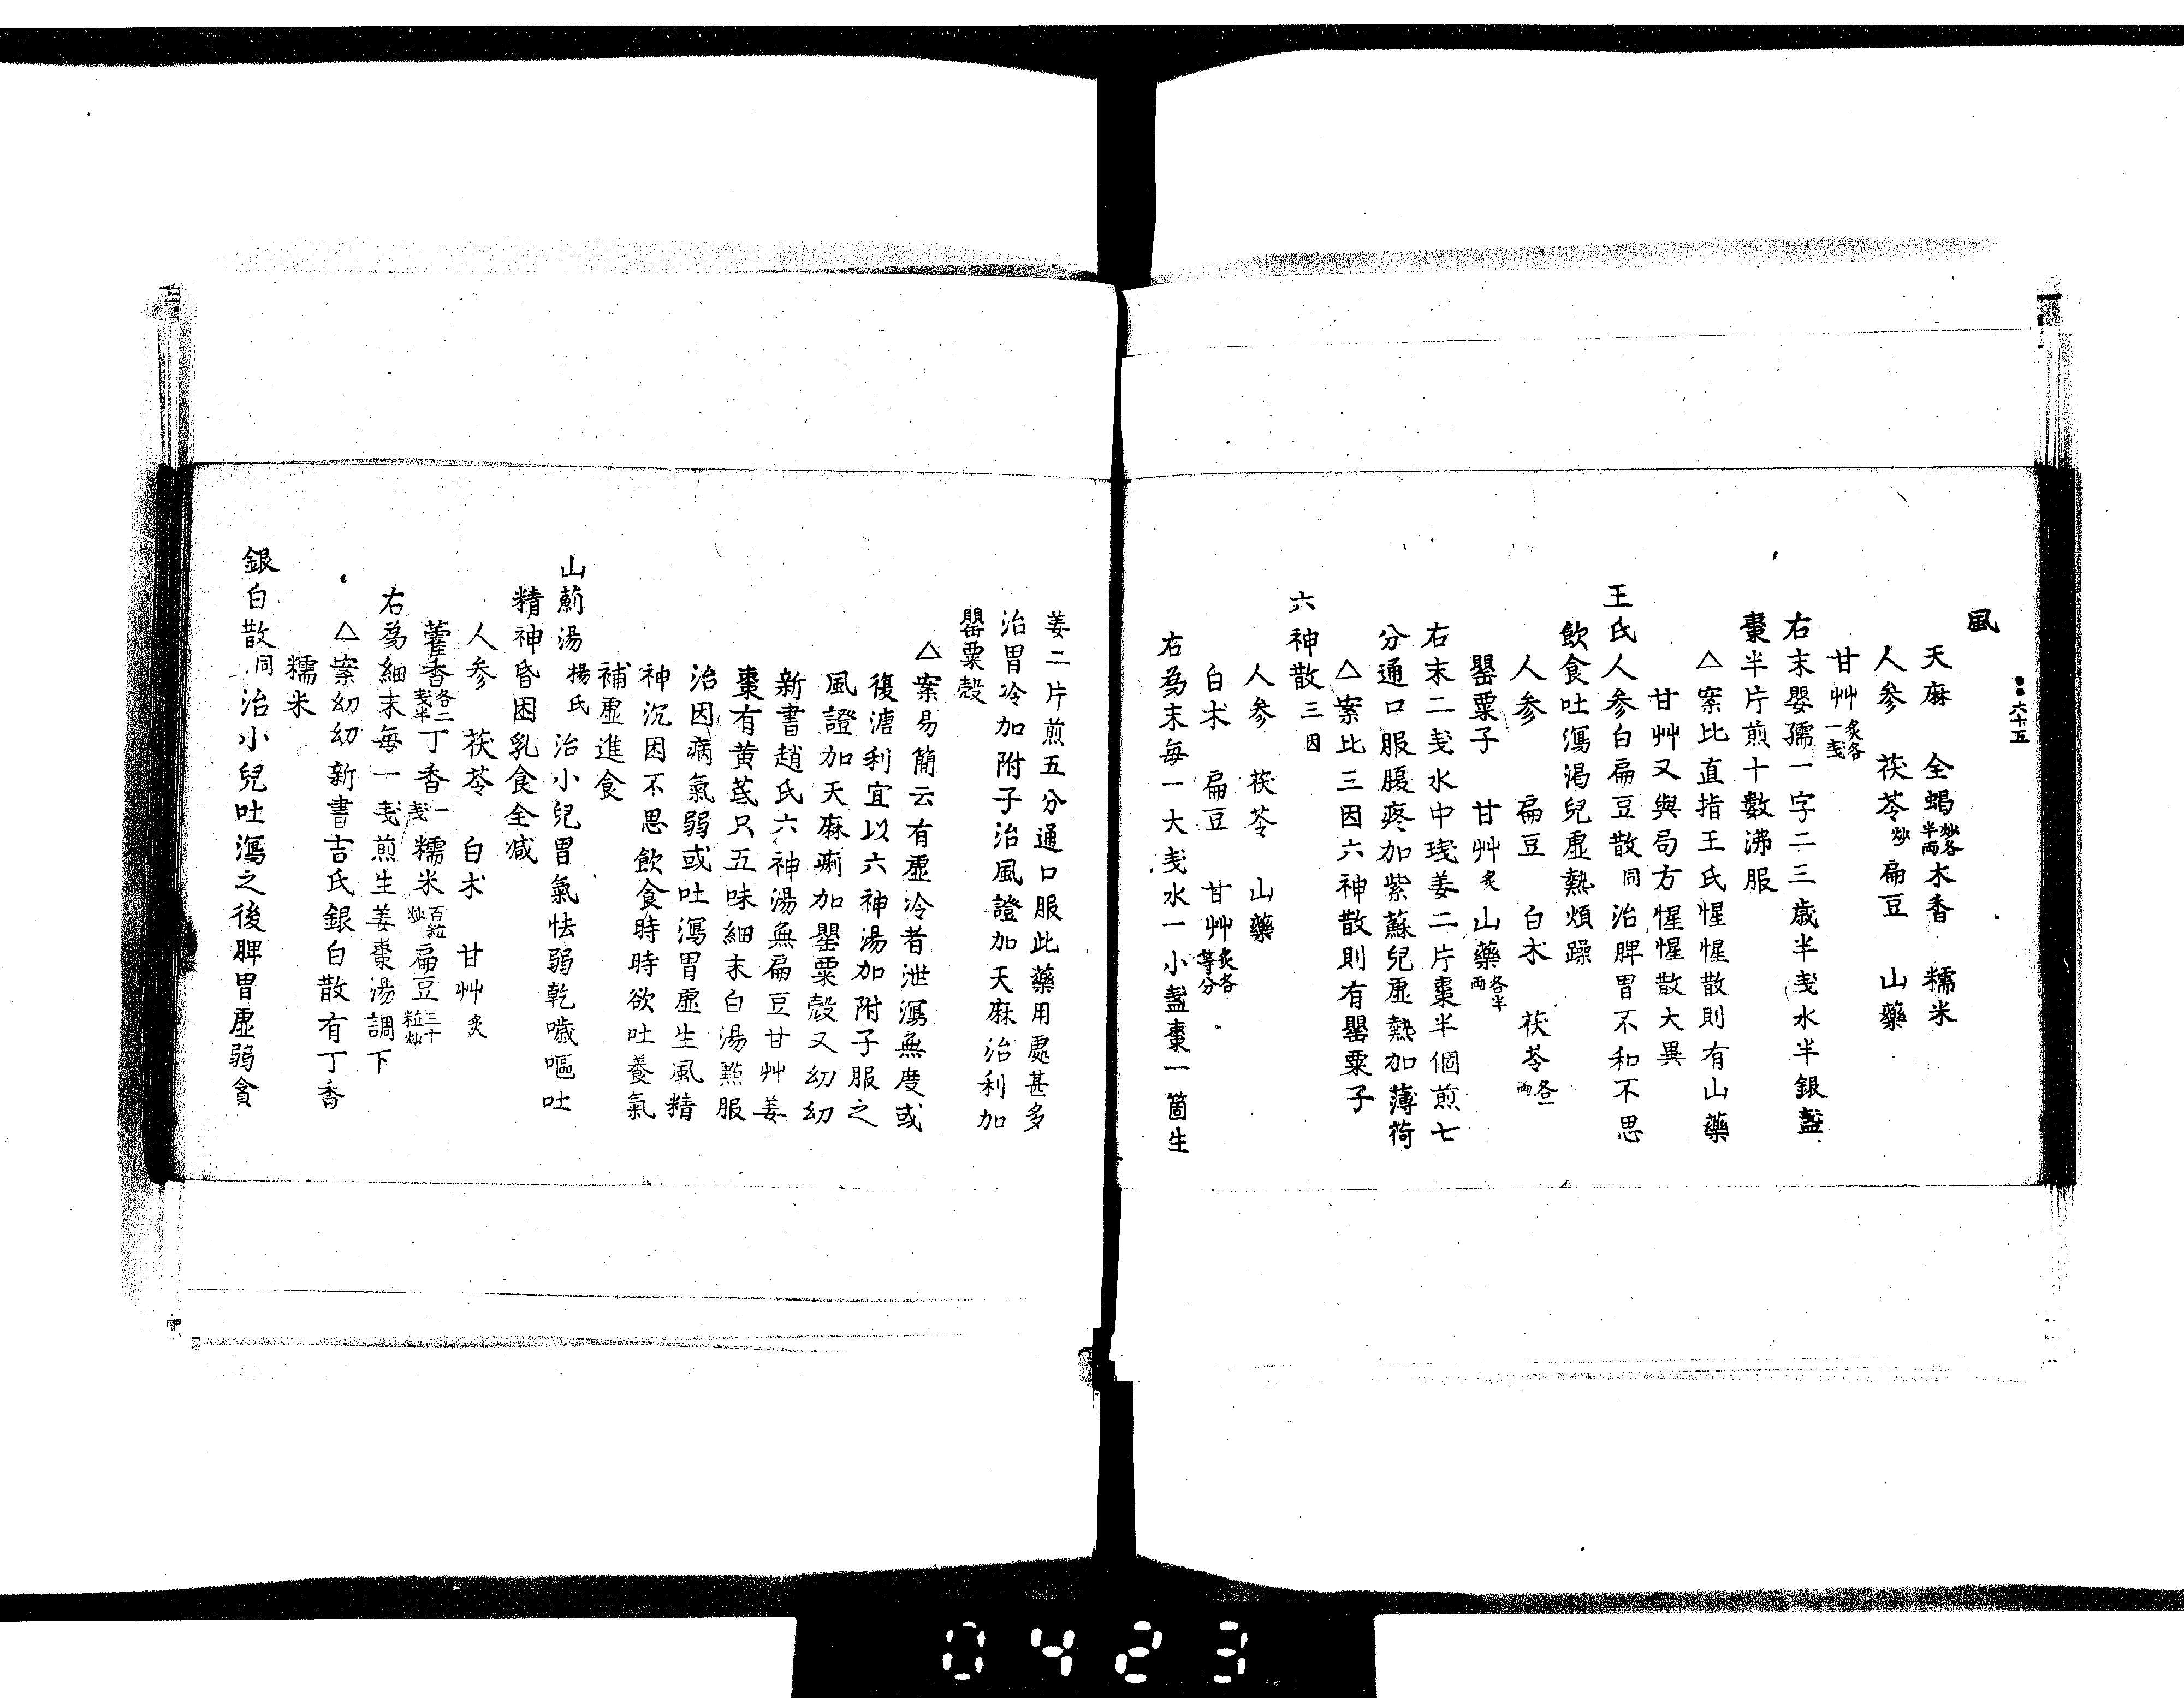 六十五
風
天麻 全蝎炒各半両 木香 糯米
人参 茯苓炒 扁豆 山藥
甘艸炙各一戔
右末嬰孺一字二三歳半戔水半銀盞
棗半片煎十數沸服
△案比直指王氏惺惺散則有山藥
甘艸又與局方惺惺散大異
王氏人参白扁豆散同治脾胃不和不思
飲食吐瀉渇兒虚熱煩躁
人参 扁豆 白朮 茯苓各一両
罌粟子 甘艸炙 山藥各半両
右末二戔水中琖姜二片棗半個煎七
分通口服腹疼加紫蘇兒虚熱加薄荷
△案比三因六神散則有罌粟子
六神散三因
人参 茯苓 山藥
白朮 扁豆 甘艸炙各等分
右為末毎一大戔水一小盞棗一箇生
姜二片煎五分通口服此藥用處甚多
治胃冷加附子治風證加天麻治利加
罌粟殻
△案易簡云有虚冷者泄瀉無度或
復溏利宜以六神湯加附子服之
風證加天麻痢加罌粟殻又幼幼
新書趙氏六神湯無扁豆甘艸姜
棗有黄芪只五味細末白湯㸃服
治因病氣弱或吐瀉胃虚生風精
神沉困不思飲食時時欲吐養氣
補虚進食
山薊湯楊氏治小兒胃氣怯弱乾噦嘔吐
精神昏困乳食全减
人参 茯苓 白朮 甘艸炙
藿香各二戔半 丁香一戔 糯米百粒炒 扁豆三十粒炒
右為細末毎一戔煎生姜棗湯調下
△案幼幼新書吉氏銀白散有丁香
糯米
銀白散同治小兒吐瀉之後脾胃虚弱貪
0423